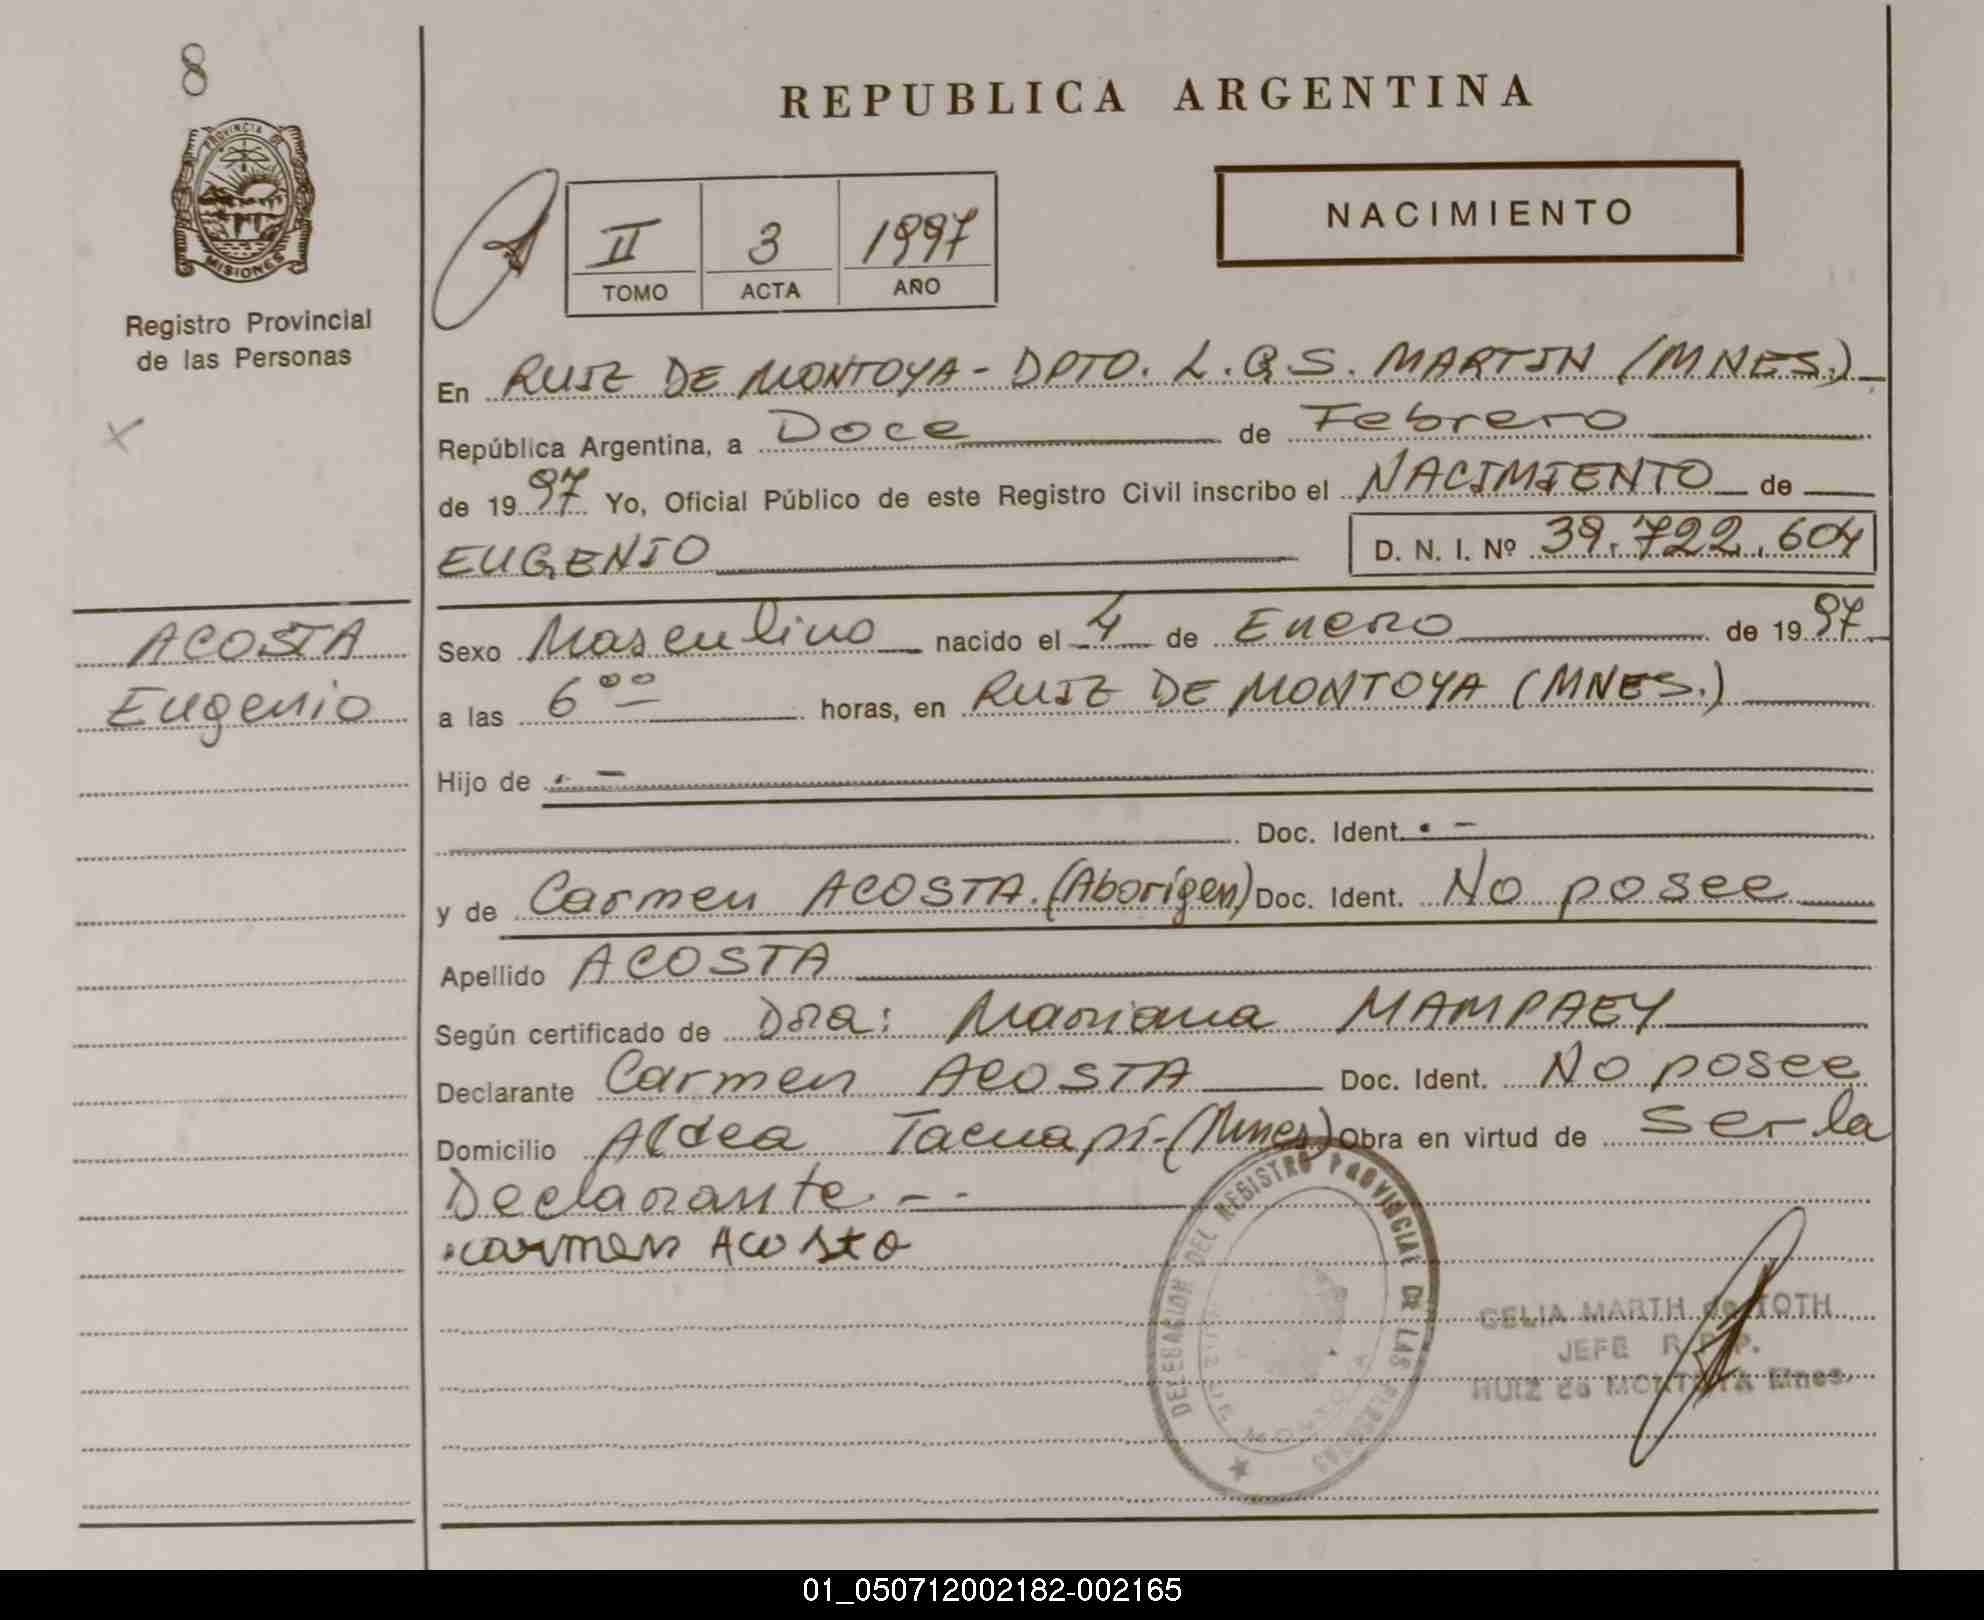 8
REPUBLICA ARGENTINA
PROVINCIA DE
MISIONES
Registro Provincial
de las Personas
II 3 1997
TOMO ACTA AÑO
NACIMIENTO
En RUIZ DE MONTOYA - DPTO. L.G.S. MARTIN (MNES.)
República Argentina, a Doce de Febrero
de 1997 Yo, Oficial Público de este Registro Civil inscribo el NACIMIENTO de
EUGENIO D. N. I. Nº 39.722.604
ACOSTA
Eugenio
Sexo Masculino nacido el 4 de Enero de 1997
a las 6 00 horas, en RUIZ DE MONTOYA (MNES.)
Hijo de . -
Doc. Ident. . -
y de Carmen ACOSTA. (Aborígen) Doc. Ident. No posee
Apellido ACOSTA
Según certificado de Dra: Mariana MAMPAEY
Declarante Carmen ACOSTA Doc. Ident. No posee
Domicilio Aldea Tacuapí - (Mnes) Obra en virtud de ser la
Declarante. - -
carmen Acosta
DELEGACION DEL REGISTRO PROVINCIAL DE LAS PERSONAS
RUIZ DE MONTOYA
CELIA MARTH de TOTH
JEFE R.P.P.
RUIZ de MONTOYA Mnes.
01_050712002182-002165